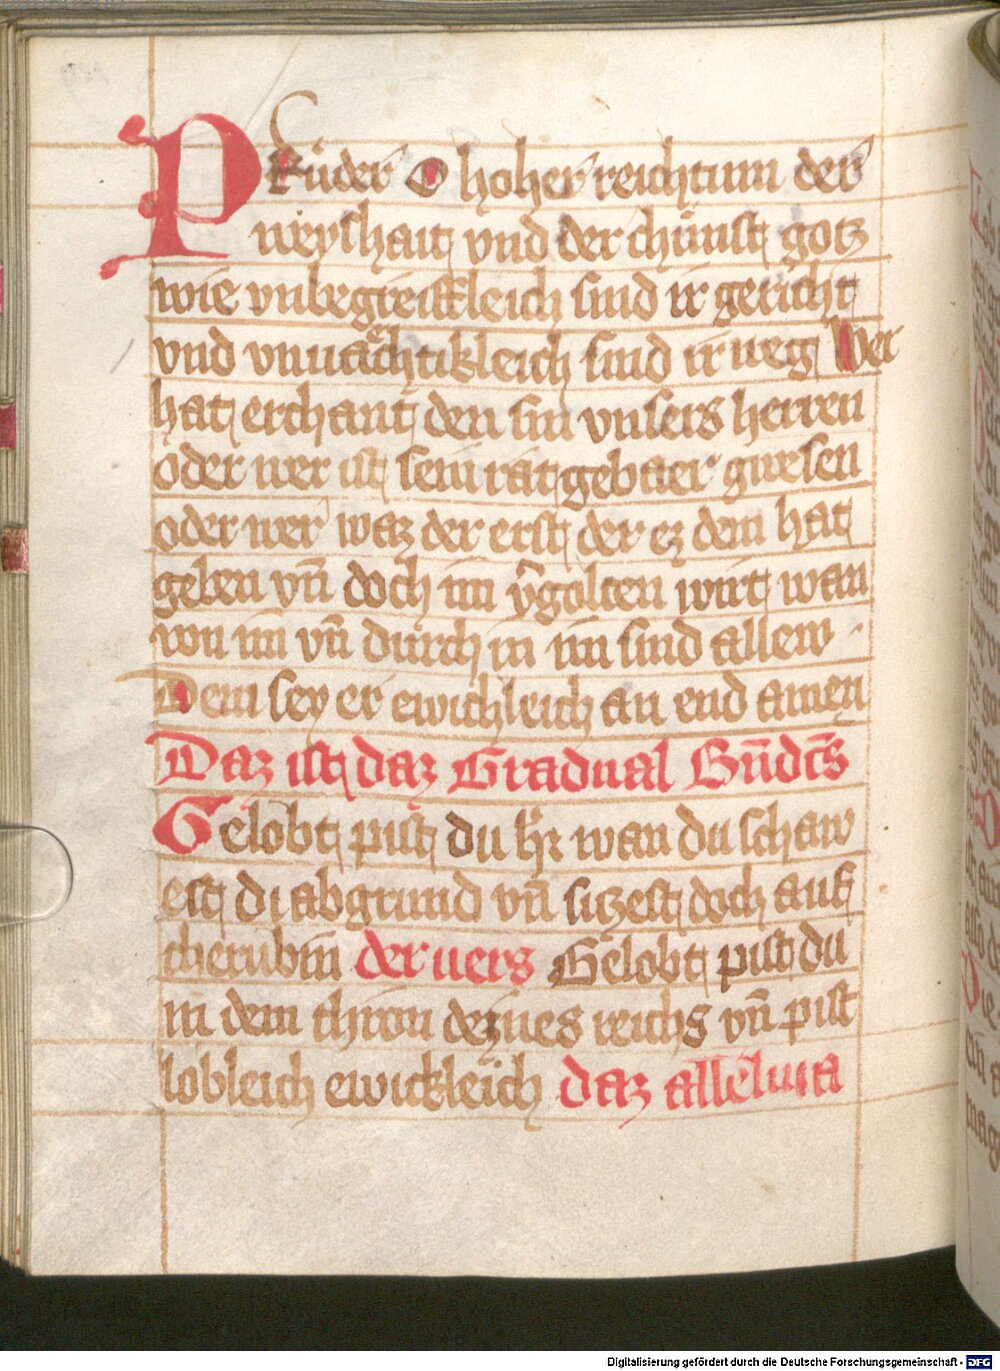 PRüder O hoher reichtum der
weyshait vnd der chünst gotz
wie vnbegreifkleich sind ir gericht
vnd vnuͤachtikleich sind ir weg Wer
hat erchant den sin vnsers herren
oder wer ist sein ratgebaer gwesen
oder wer waz der erst der ez dem hat
geben vn̄ doch im v̄golten wirt wan
von im vn̄ durch in im sind allew
Dem sey er ewichleich an end amen
Daz ist daz Gradual Bn̄dc̄s
Gelobt pist du hr̄ wan du schaw
est di abgrund vn̄ siczest doch auf
cherubin der vers Gelobt pist du
in dem thron deynes reichs vn̄ pist
lobleich ewickleich daz alleluia
Digitalisierung gefördert durch die Deutsche Forschungsgemeinschaft - DFG